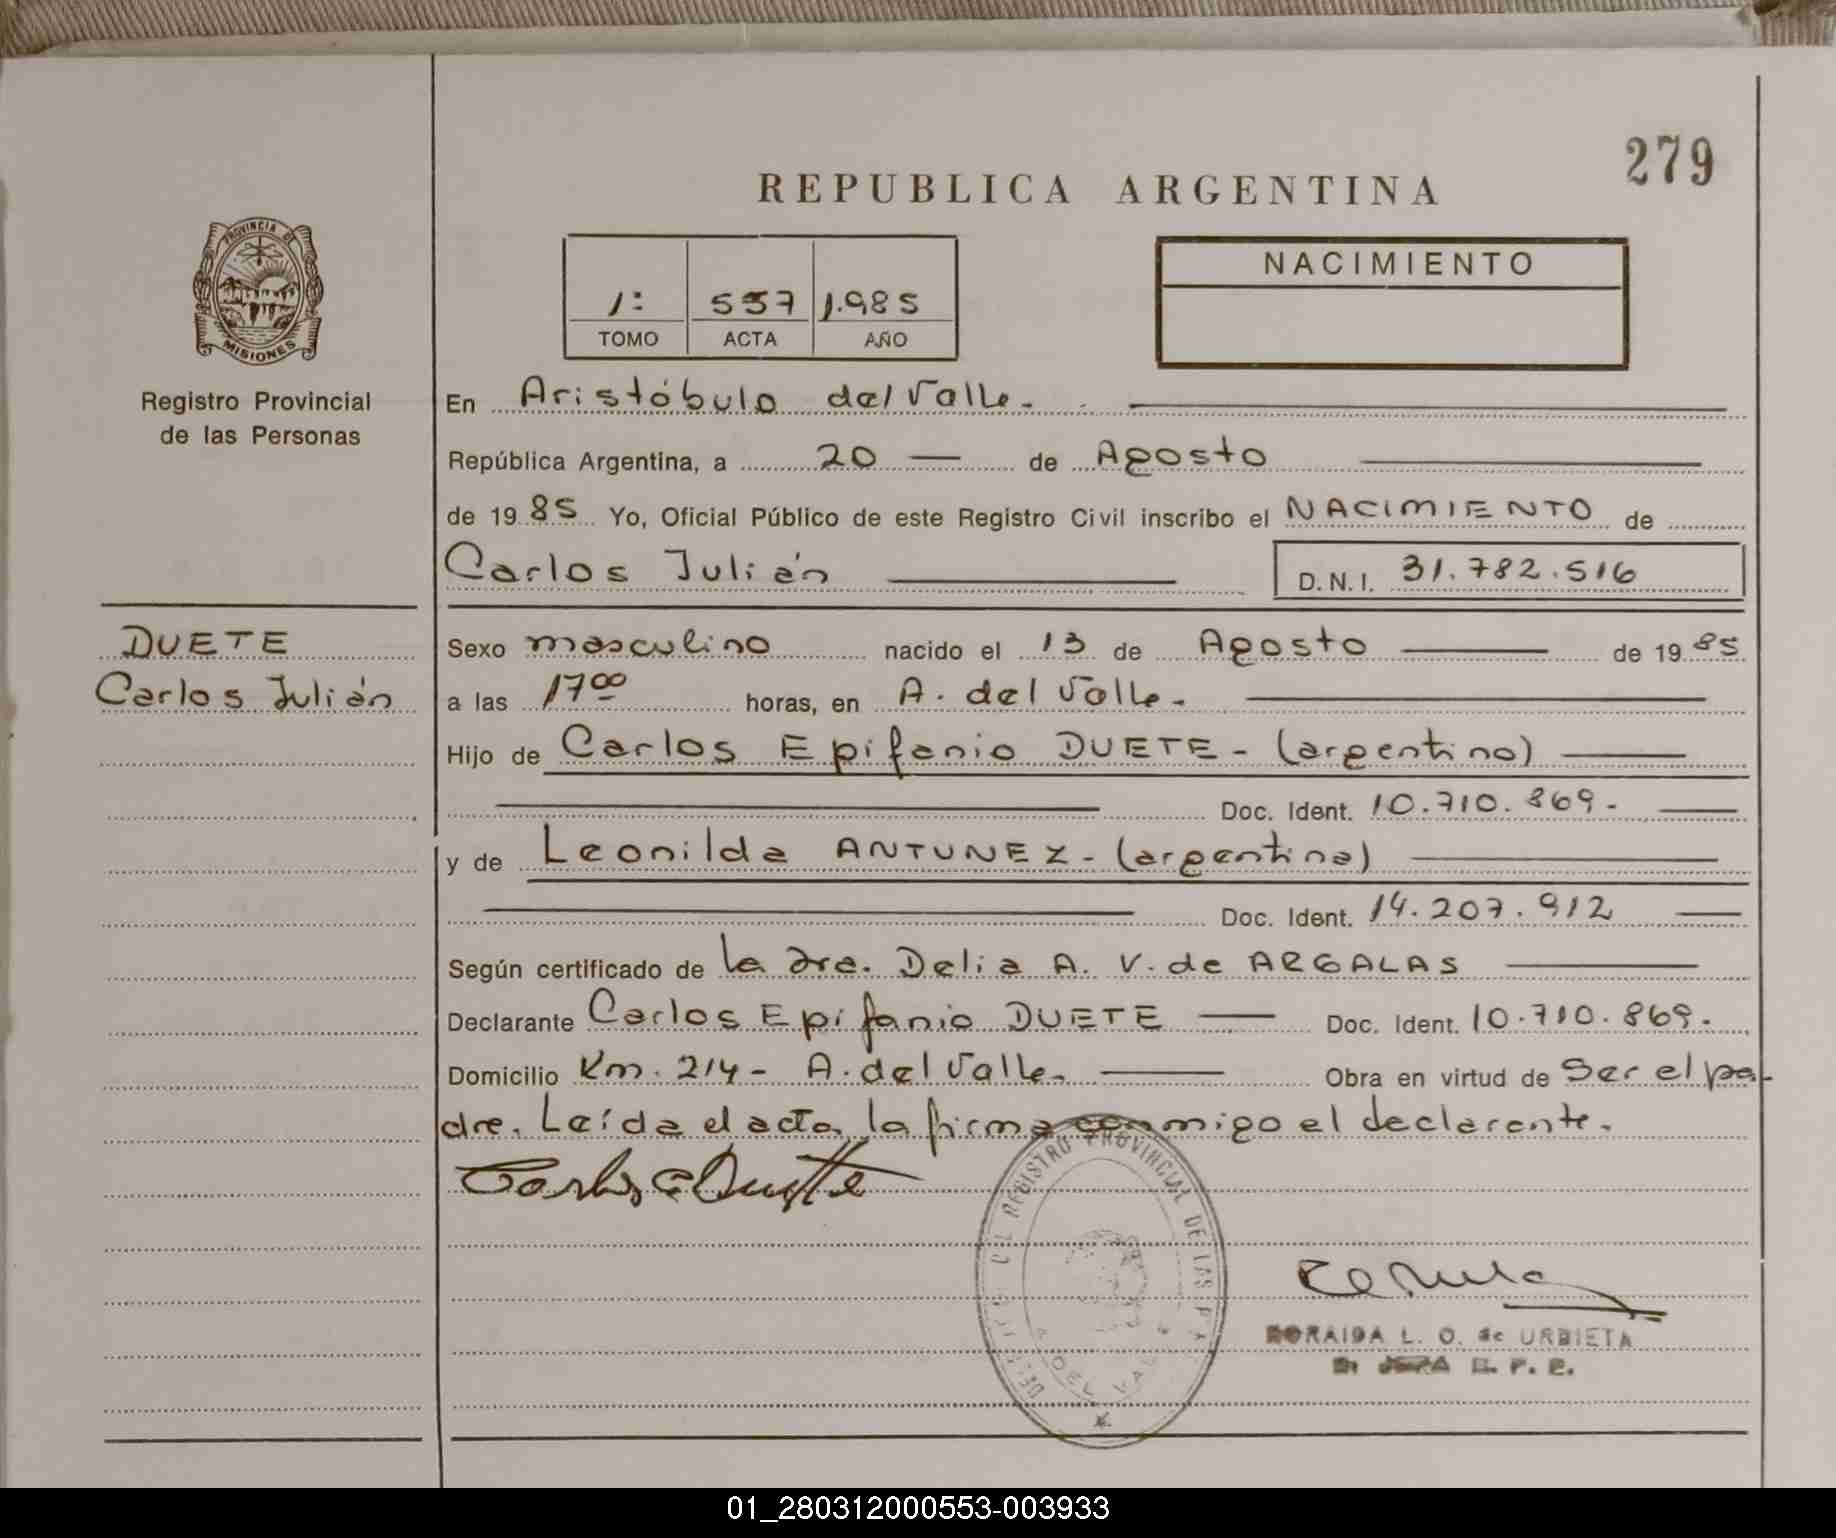 279
REPUBLICA ARGENTINA
PROVINCIA DE
MISIONES
Registro Provincial
de las Personas
1: 557 1.985
TOMO ACTA AÑO
NACIMIENTO
En Aristóbulo del Valle.
República Argentina, a 20 — de Agosto
de 1985 Yo, Oficial Público de este Registro Civil inscribo el NACIMIENTO de
Carlos Julián D.N.I. 31.782.516
DUETE
Carlos Julián
Sexo masculino nacido el 13 de Agosto de 1985
a las 17 00 horas, en A. del Valle.
Hijo de Carlos Epifanio DUETE - (argentino)
Doc. Ident. 10.710.869.
y de Leonilda ANTUNEZ - (argentina)
Doc. Ident. 14.207.912
Según certificado de la dra. Delia A. V. de ARGALAS
Declarante Carlos Epifanio DUETE — Doc. Ident. 10.710.869.
Domicilio Km. 214 - A. del Valle. Obra en virtud de Ser el pa-
dre. Leída el acta, la firma conmigo el declarante.
Carlos E Duette
REGISTRO PROVINCIAL DE LAS
DEL VAL
L. O. de URBIETA
01_280312000553-003933